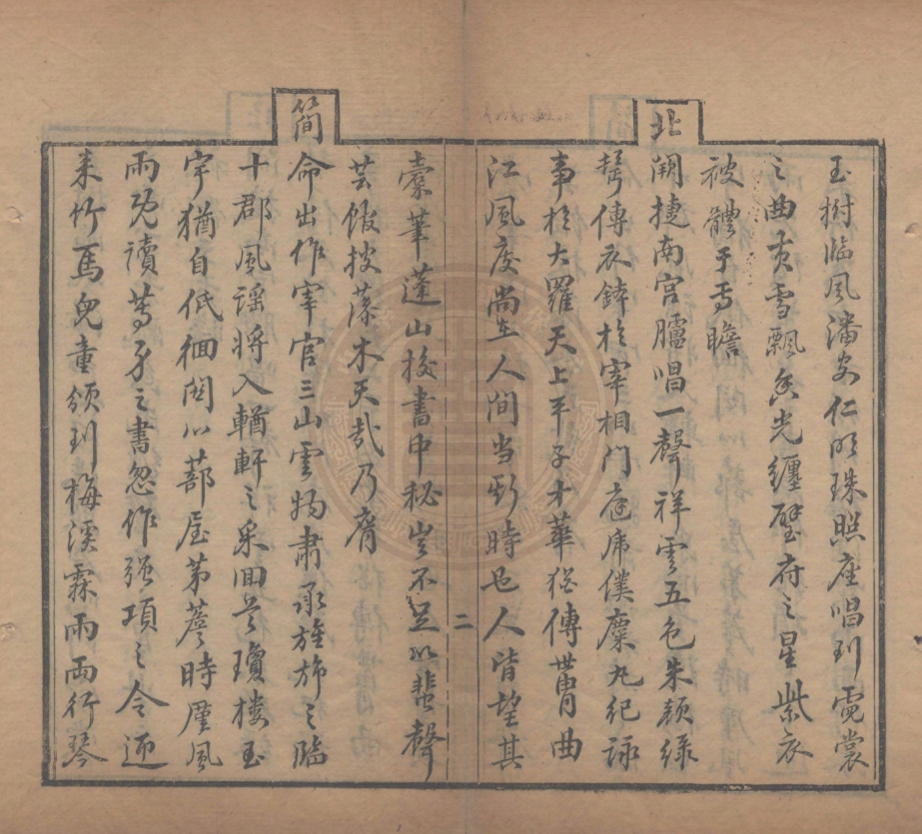 玉樹臨風潘安仁明珠照座唱到霓裳
之曲黄雪飄香光纏璧府之星紫衣
被體于焉瞻
北闕捷南宮臚唱一聲祥雲五色朱顏緑
鬢傳衣鉢於宰相門庭席僕麋丸紀詠
事於大羅天上平子才華猶傳世胄曲
江風度尚在人间当斯時也人皆望其
二
橐筆蓬山校書中秘豈不足以蜚聲
芸館披藻木天哉乃膺
簡命出作宰官三山雲物肅承旌斾之臨
十郡風谣将入輶軒之采回首瓊樓玉
宇猶自低徊関心蔀屋茅簷時廑風
雨既讀等身之書忽作强項之令迎
来竹馬兒童頌到梅溪霖雨兩行琴